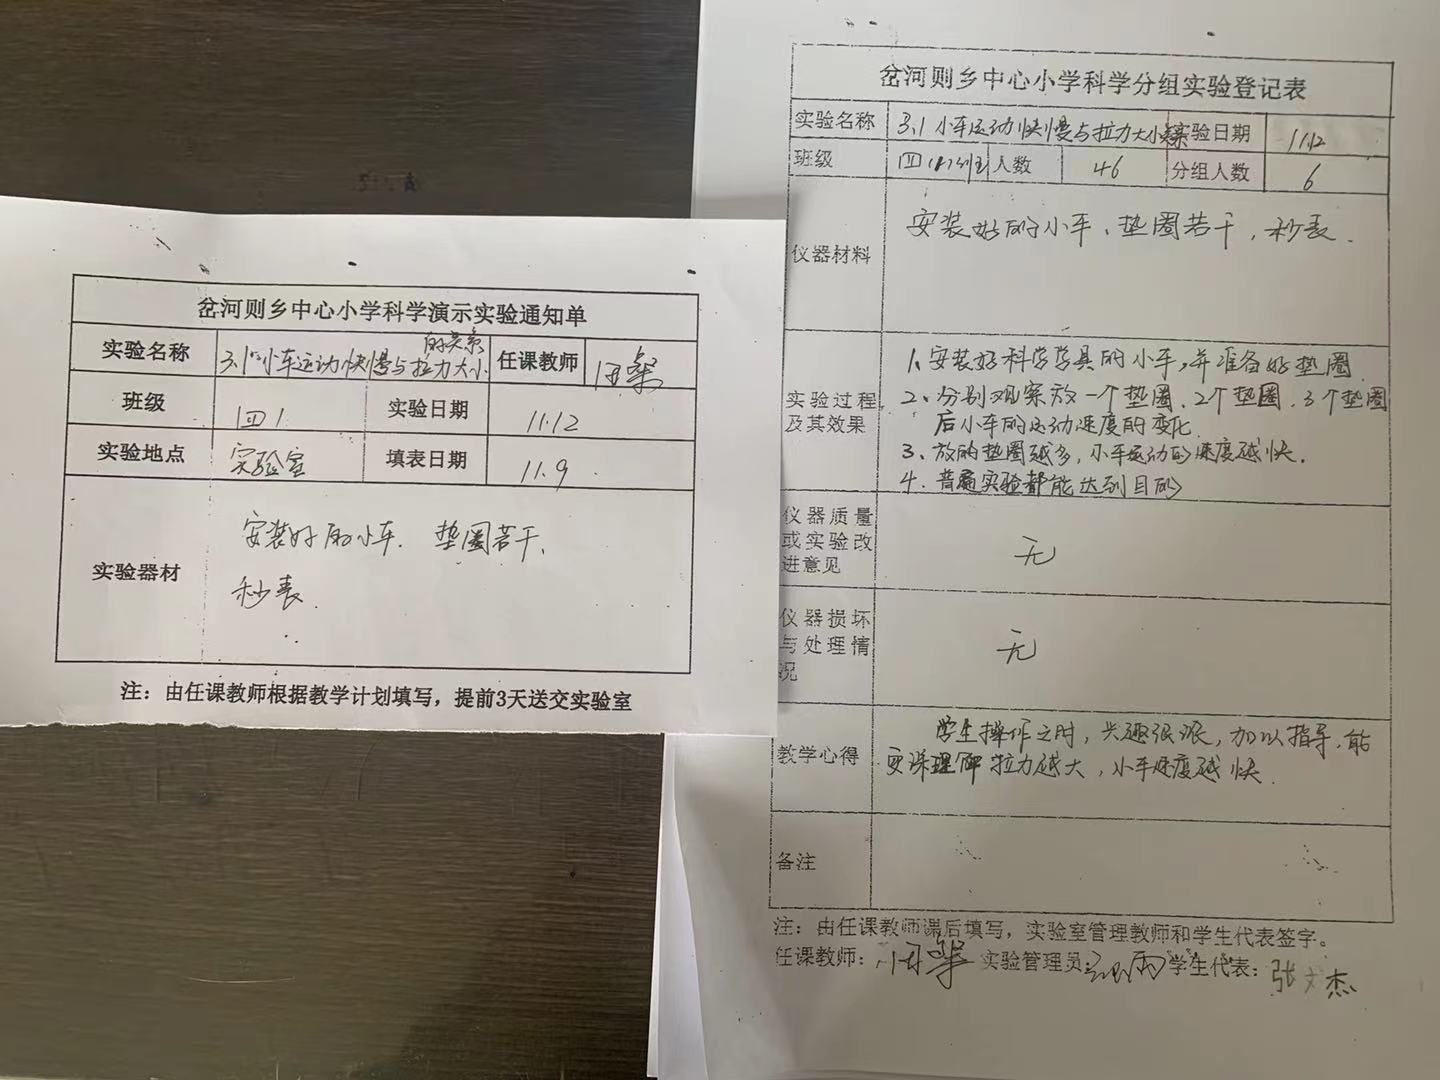 岔河则乡中心小学科学演示实验通知单
实验名称 3.1 小车运动快慢与拉力大小的关系 任课教师
班级 四1 实验日期 11.12
实验地点 实验室 填表日期 11.9
实验器材 安装好的小车、垫圈若干、
秒表
注：由任课教师根据教学计划填写，提前3天送交实验室
岔河则乡中心小学科学分组实验登记表
实验名称 3.1 小车运动快慢与拉力大小关系 实验日期 11.12
班级 四 人数 46 分组人数 6
仪器材料 安装好的小车、垫圈若干，秒表.
实验过程及其效果
1、安装好科学学具的小车，并准备好垫圈
2、分别观察放一个垫圈、2个垫圈、3个垫圈
后小车的运动速度的变化
3、放的垫圈越多，小车运动的速度越快.
4. 普遍实验都能达到目的
仪器质量
或实验改
进意见 无
仪器损坏
与处理情
况 无
教学心得 学生操作之时，兴趣很浓，加以指导，能
更深理解拉力越大，小车速度越快.
备注
注：由任课教师课后填写，实验室管理教师和学生代表签字。
任课教师： 实验管理员： 学生代表：张文杰